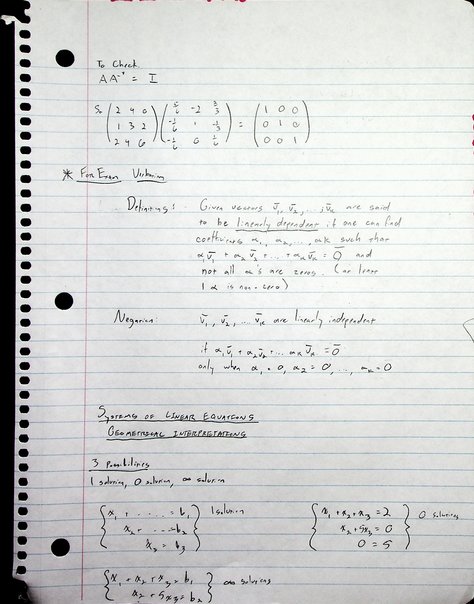 To Check
AA⁻¹ = I
So (2 4 0) (5/6 -2 2/3) = (1 0 0)
(1 3 2) (-1/6 1 -1/3) (0 1 0)
(2 4 6) (-1/6 0 1/6) (0 0 1)
* For Exam Verbatim
Definitions: Given vectors v̄₁, v̄₂, ..., v̄ₖ are said
to be linearly dependent if one can find
coefficients α₁, α₂, ..., αk such that
αv̄₁ + α₂v̄₂ + ... + αₖv̄ₖ = 0̄ and
not all α's are zeros. (at least
1 α is non-zero)
Negation: v̄₁, v̄₂, ... v̄ₖ are linearly independent
if α₁v̄₁ + α₂v̄₂ + ... αₖv̄ₖ = 0̄
only when α₁ = 0, α₂ = 0, ..., αₖ = 0
Systems of Linear Equations
Geometrical Interpretations
3 Possibilities
1 solution, 0 solution, ∞ solution
{x₁ + ..... = b₁} 1 solution {x₁ + x₂ + x₃ = 2} 0 solutions
{x₂ + ... = b₂} {x₂ + 5x₃ = 0}
{x₃ = b₃} {0 = 5}
{x₁ + x₂ + x₃ = b₁} ∞ solutions
{x₂ + 5x₃ = b₂}